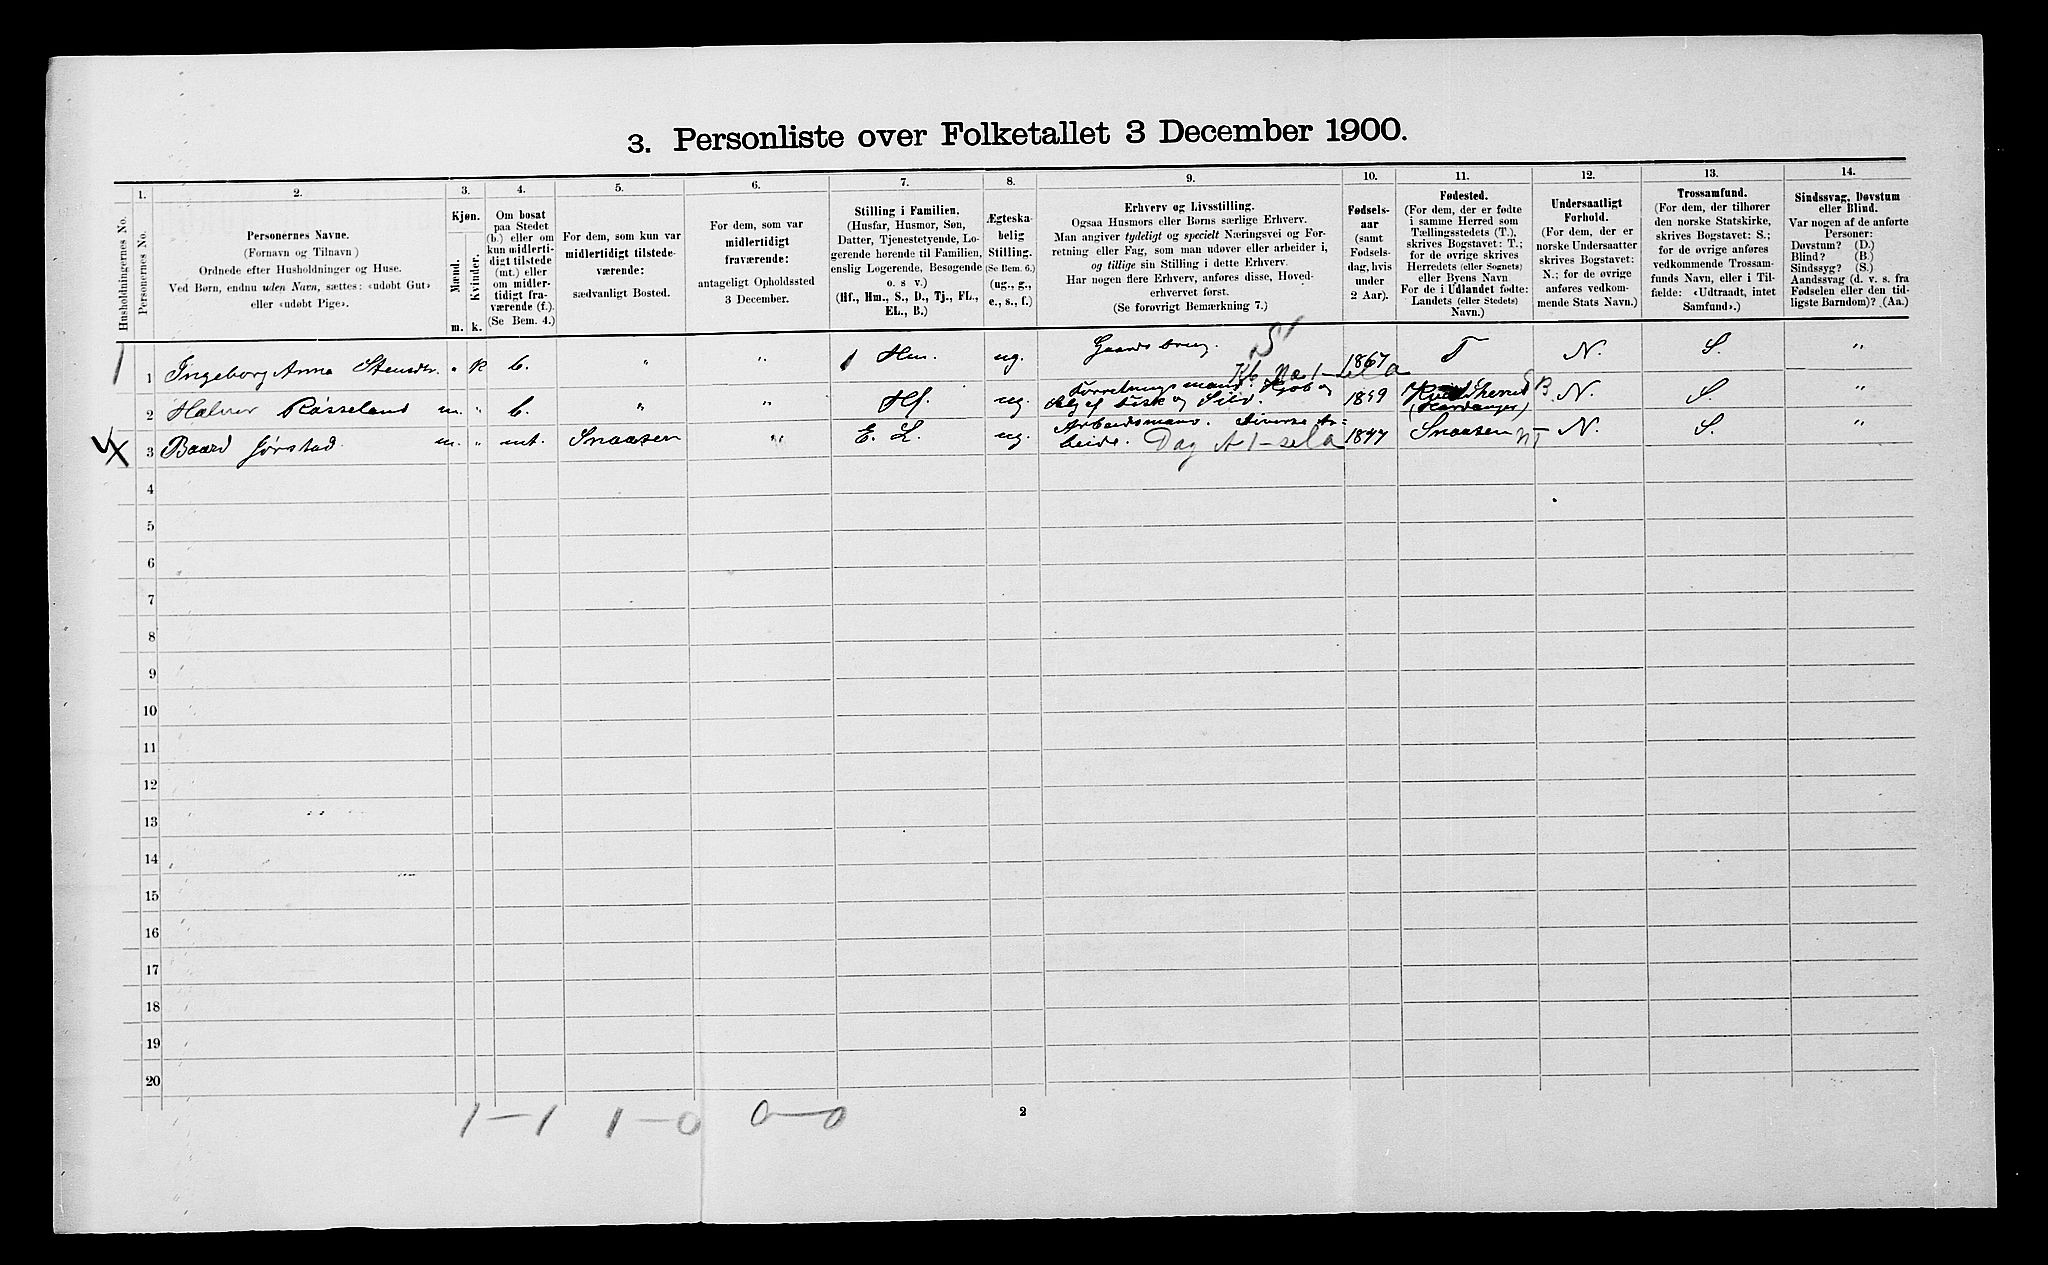 3. Personliste over Folketallet 3 December 1900.
Husholdningernes No.
1.
Personernes No.
2.
Personernes Navne.
(Fornavn og Tilnavn)
Ordnede efter Husholdninger og Huse.
Ved Børn, endnu uden Navn, sættes: «udøbt Gut»
eller «udøbt Pige».
3.
Kjøn.
Mænd.
Kvinder.
m.
k.
4.
Om bosat
paa Stedet
(b.) eller om
kun midlerti-
digt tilstede
(mt.) eller
om midler-
tidigt fra-
værende (f.).
(Se Bem. 4.)
5.
For dem, som kun var
midlertidigt tilstede-
værende:
sædvanligt Bosted.
6.
For dem, som var
midlertidigt
fraværende:
antageligt Opholdssted
3 December.
7.
Stilling i Familien.
(Husfar, Husmor, Søn,
Datter, Tjenestetyende, Lo-
gerende hørende til Familien,
enslig Logerende, Besøgende
o. s v.)
(Hf., Hm., S., D., Tj., FL.,
EL., B.)
8.
Ægteska-
belig
Stilling.
(Se Bem. 6.)
(ug., g.,
e., s., f.)
9.
Erhverv og Livsstilling.
Ogsaa Husmors eller Børns særlige Erhverv.
Man angiver tydeligt og specielt Næringsvei og For-
retning eller Fag, som man udøver eller arbeider i,
og tillige sin Stilling i dette Erhverv.
Har nogen flere Erhverv, anføres disse, Hoved-
erhvervet først.
(Se forøvrigt Bemærkning 7.)
10.
Fødsels-
aar
(samt
Fødsels-
dag, hvis
under
2 Aar).
11.
Fødested.
(For dem, der er fødte
i samme Herred som
Tællingsstedets (T.),
skrives Bogstavet: T.;
for de øvrige skrives
Herredets (eller Sognets)
eller Byens Navn
For de i Udlandet fødte:
Landets (eller Stedets)
Navn.)
12.
Undersaatligt
Forhold.
(For dem, der er
norske Undersaatter
skrives Bogstavet:
N.; for de øvrige
anføres vedkom-
mende Stats Navn.)
13.
Trossamfund.
(For dem, der tilhører
den norske Statskirke,
skrives Bogstavet: S.;
for de øvrige anføres
vedkommende Trossam-
funds Navn, eller i Til-
fælde: «Udtraadt, intet
Samfund».)
14.
Sindssvag, Døvstum
eller Blind.
Var nogen af de anførte
Personer:
Døvstum? (D.)
Blind? (B.)
Sindssyg? (S.)
Aandssvag (d. v. s. fra
Fødselen eller den tid-
ligste Barndom)? (Aa.)
1 1 Ingeborg Anna Stensdtr. " k b. " " 1 Hm. ug. Gaardsbrug. S 1867 T N. S. "
2 Halvor Røsseland m. " b. " " Hf. ug. Forretningsmand. Kjøb og
Salg af Fisk og Sild. 1859 B N. S. "
(Hardanger)
3 Baard Jørstad. m. " mt. Snaasen " E. L. ug. Arbeidsmand. Diverse Ar-
beide. Dag A 1 - sela 1877 Snaasen NT N. S. "
4
5
6
7
8
9
10
11
12
13
14
15
16
17
18
19
20
1-1 1-0 0-0
2